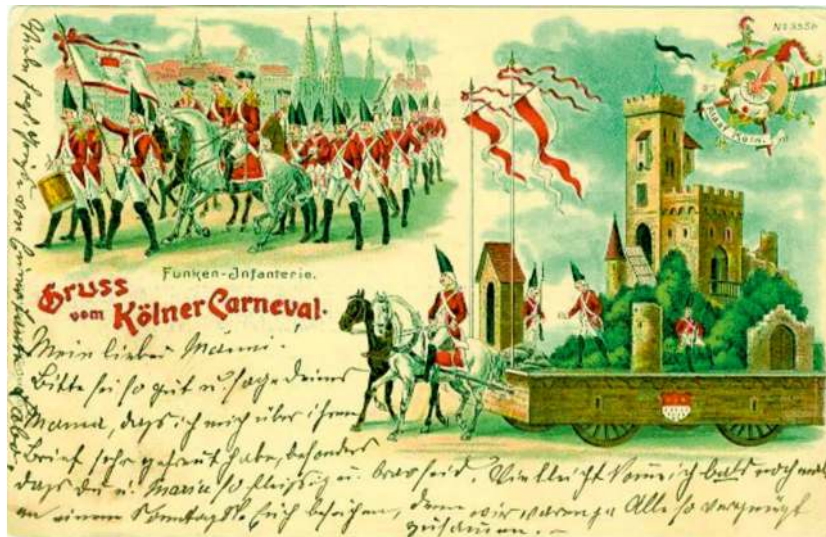 Alaaf Köln.
Funken-Infanterie.
Gruss
vom Kölner Carneval.
Mein lieber Männi!
Bitte sei so gut u. sage deiner
Mama, daß ich mich über ihren
Brief sehr gefreut habe, besonders
daß du u. Maria so fleißig u. brav seid. Vielleicht komm ich bald noch mal
an einem Sonntag Euch besuchen, denn wir waren ja Alle so vergnügt
zusammen. –